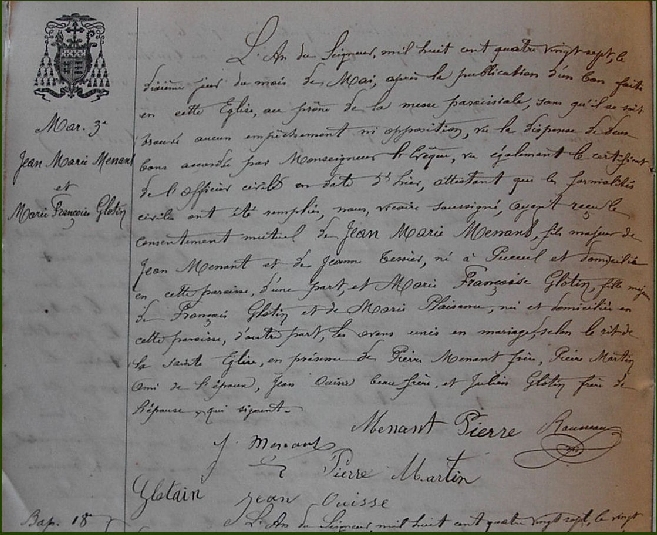 Mar. 3e
Jean Marie Menant
et
Marie Françoise Glotin
L'An du Seigneur, mil huit cent quatre vingt sept, le
dixième jour du mois de Mai, après la publication d'un ban faite
en cette Eglise, au prône de la messe paroissiale, sans qu'il se soit
trouvé aucun empêchement ni opposition, vu la dispense de deux
bans accordée par Monseigneur l'Evêque, vu également le certificat
de l'officier civil en date d'hier, attestant que les formalités
civiles ont été remplies, nous, vicaire soussigné, ayant reçu le
consentement mutuel de Jean Marie Menant, fils majeur de
Jean Menant et de Jeanne Tessier, né à Puceul et domicilié
en cette paroisse, d'une part, et Marie Françoise Glotin, fille majeure
de François Glotin et de Marie Plaisance, née et domiciliée en
cette paroisse, d'autre part, les avons unis en mariage, selon le rit de
la sainte Eglise, en présence de Pierre Menant frère, Pierre Martin
ami de l'époux, Jean Ouisse beau frère, et Julien Glotin frère de
l'épouse qui signent.
Menant Pierre
J Menant
Pierre Martin
Glotain
Jean Ouisse
Bap. 18
L'An du Seigneur, mil huit cent quatre vingt sept, le vingt